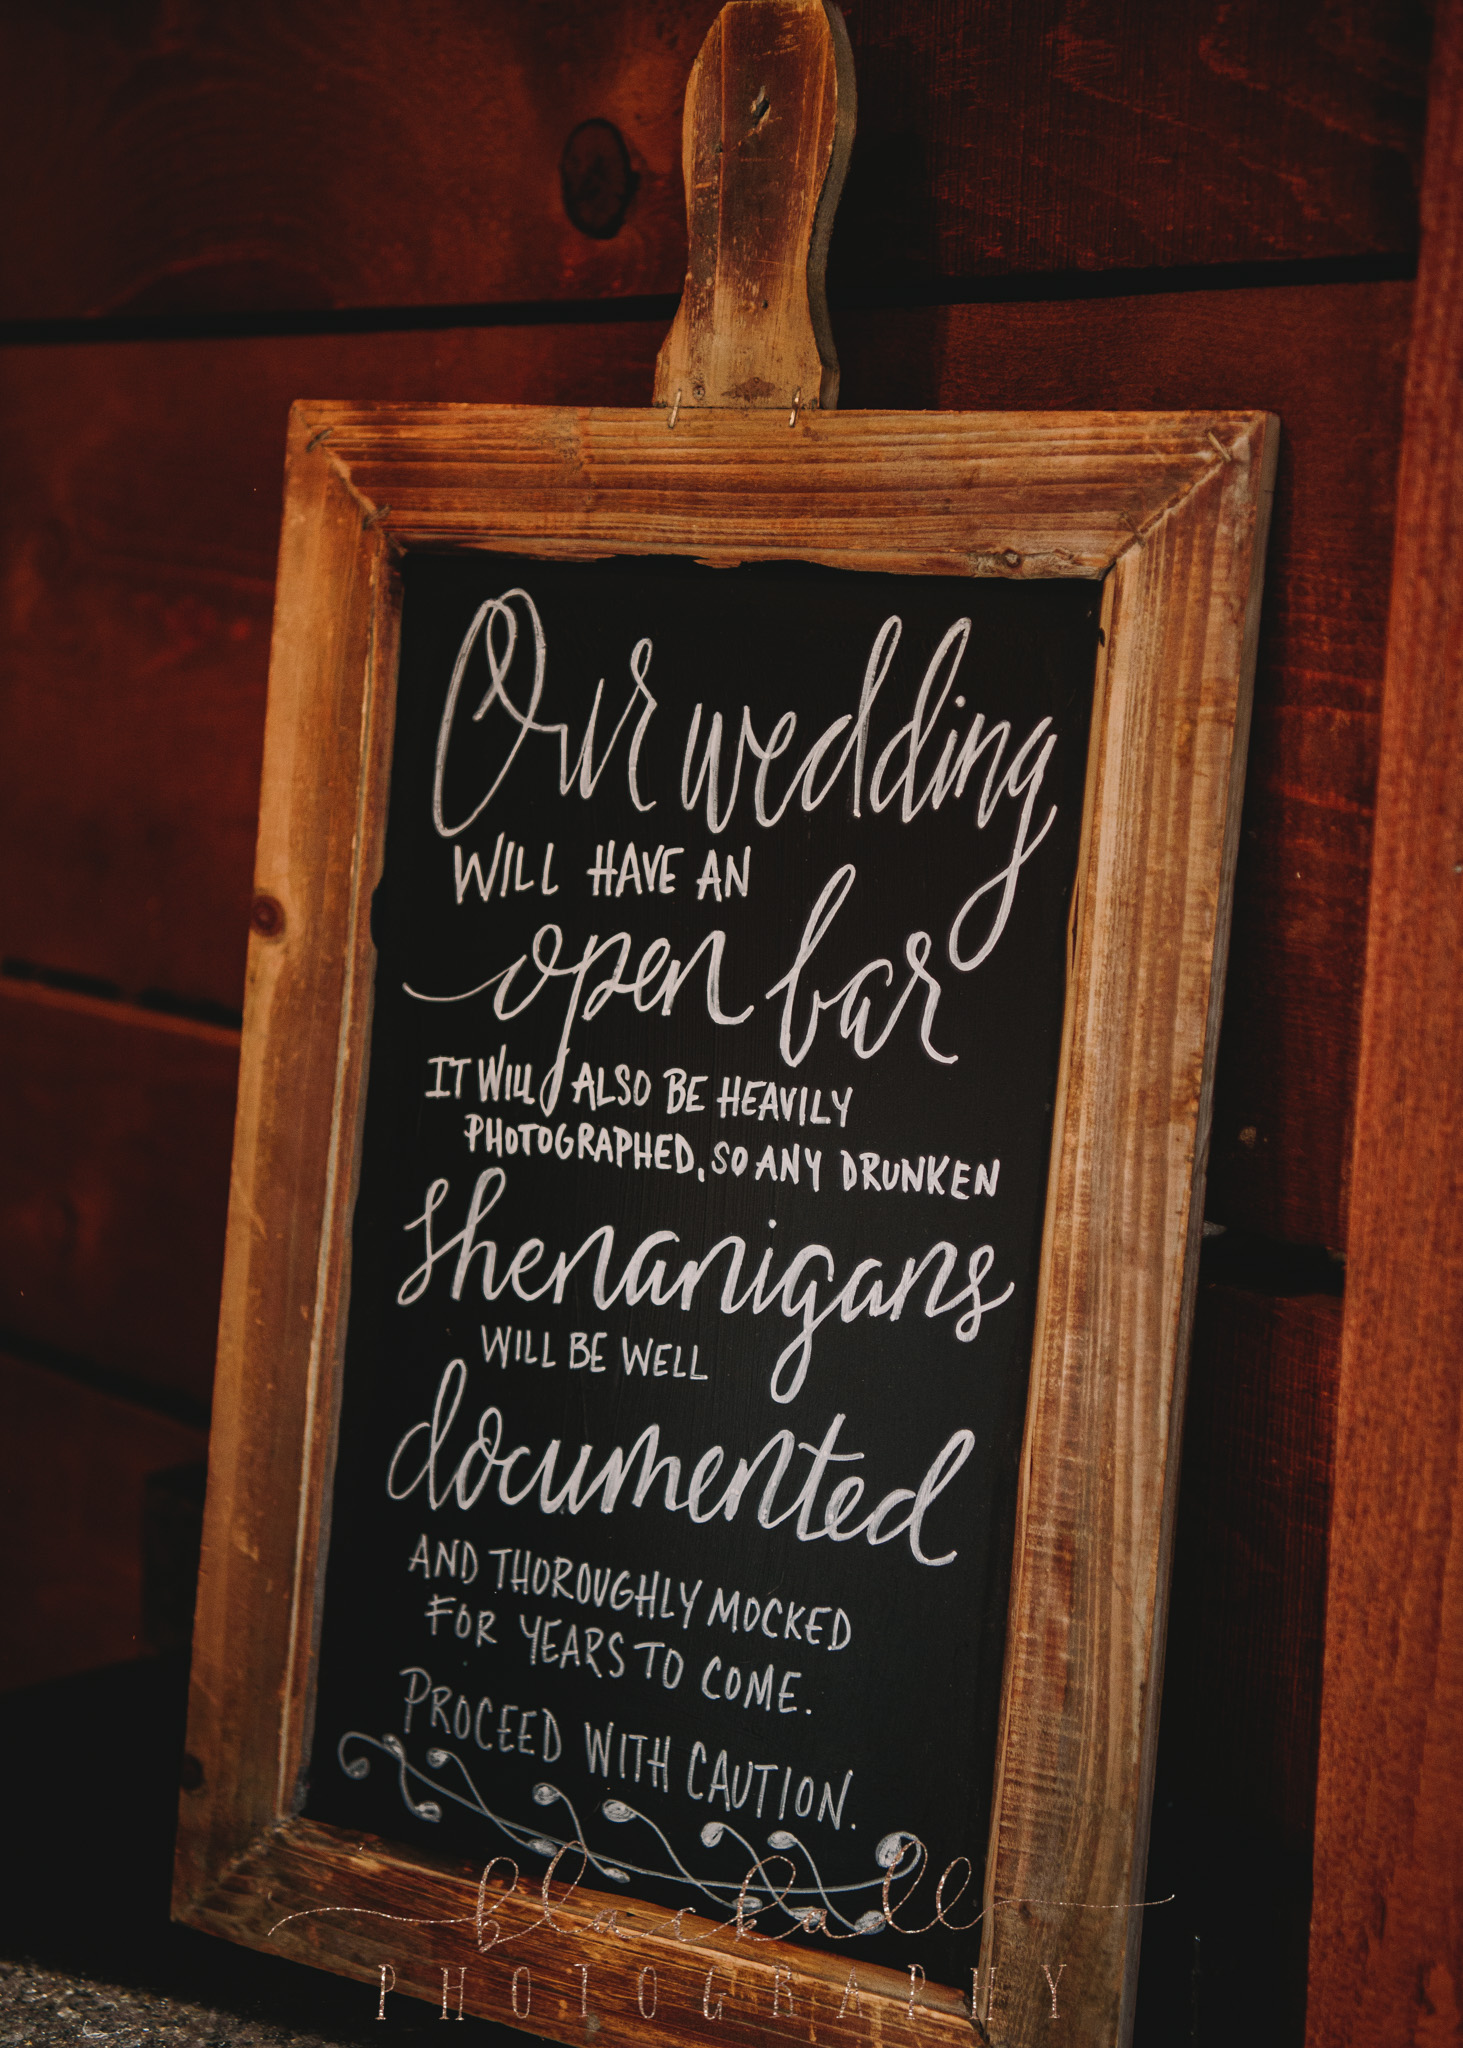 Our wedding
WILL HAVE AN
open bar
IT WILL ALSO BE HEAVILY
PHOTOGRAPHED, SO ANY DRUNKEN
shenanigans
WILL BE WELL
documented
AND THOROUGHLY MOCKED
FOR YEARS TO COME.
PROCEED WITH CAUTION.
blackall
PHOTOGRAPHY